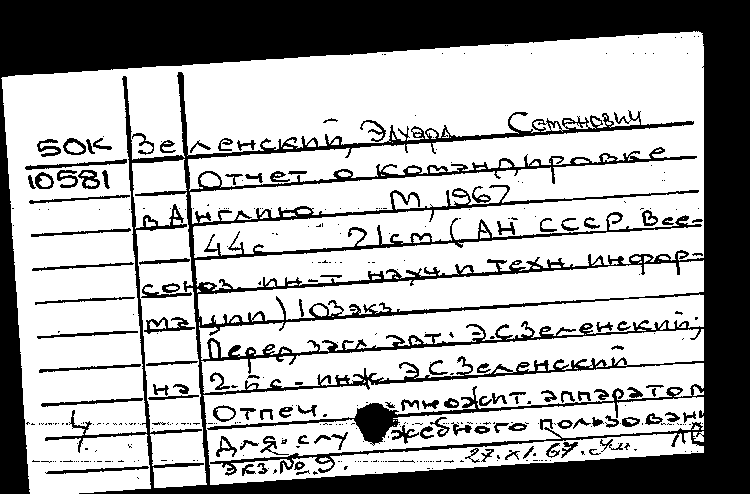 50К Зеленский, Эдуард Семенович
10581 Отчет о командировке
в Англию. М, 1967
44с 21 см. (АН СССР. Все-
союз. ин-т науч. и техн. инфор-
мации) 10экз.
Перед загл. авт.: Э.С.Зеленский;
на 2-й с - инж. Э.С.Зеленский
Отпеч. множит. аппаратом
4 Для слу жебного пользовани
экз.№9. 27.XI.67.